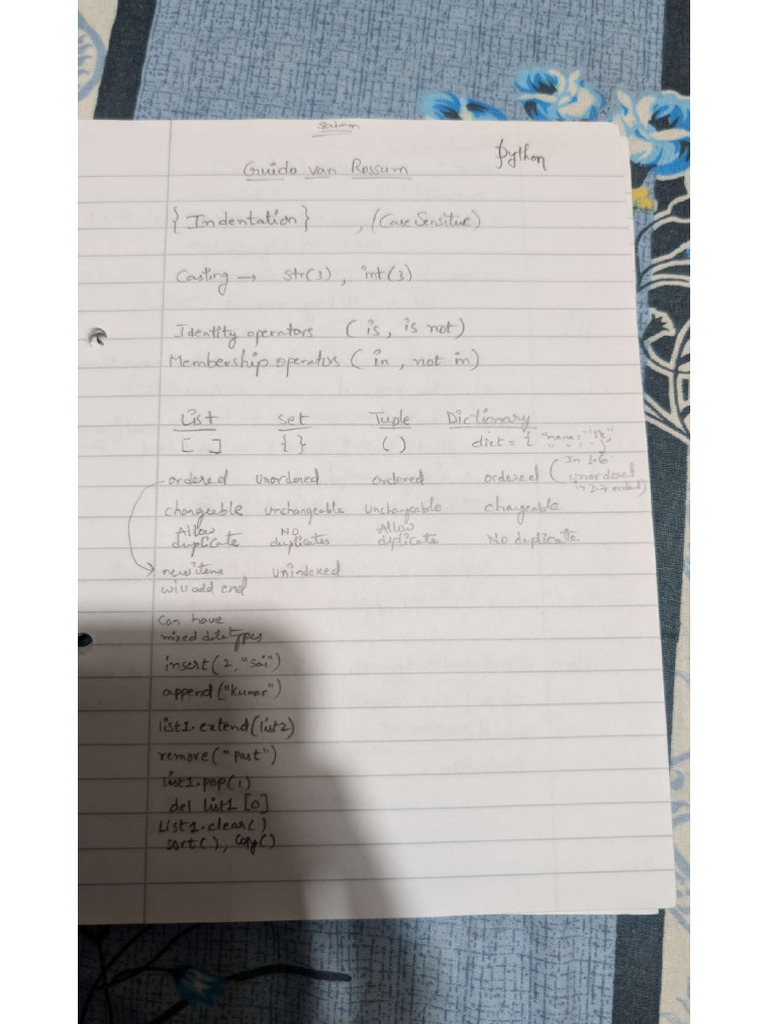 Python
Guido van Rossum
{Indentation} , (Case Sensitive)
Casting → str(3) , int(3)
Identity operators ( is , is not)
Membership operators ( in , not in)
List Set Tuple Dictionary
[ ] { } ( ) dict = {
ordered unordered ordered ordered ( In 3.6 unordered in 3.7 ordered)
changeable unchangeable unchangeable changeable
Allow duplicate No duplicates Allow duplicate No duplicate
new items unindexed
will add end
Can have
mixed data types
insert(2, "Sai")
append("Kumar")
list1.extend(list2)
remove("past")
list1.pop(1)
del list1 [0]
List1.clear()
sort(), copy()